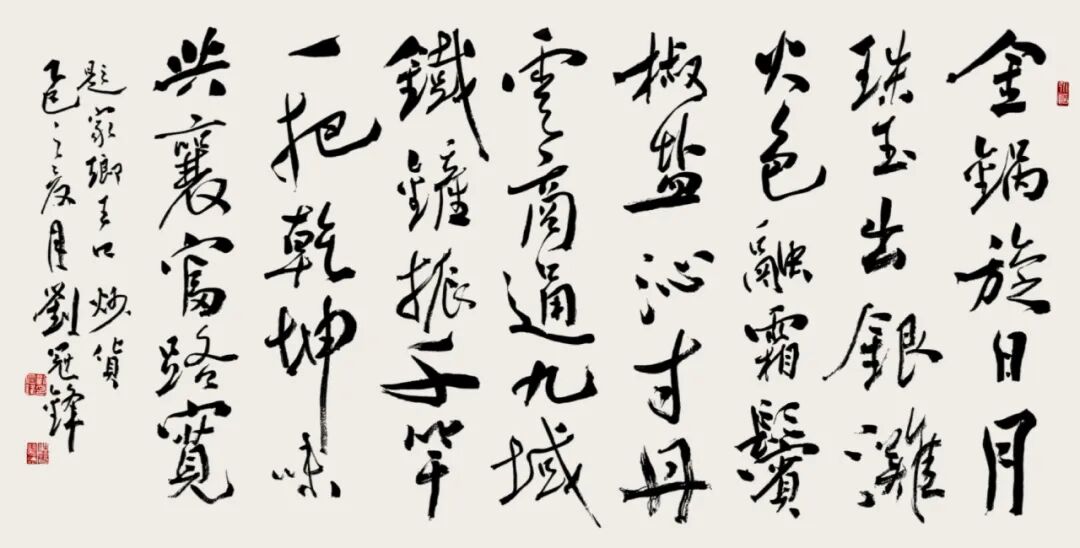 金鍋旋日月
珠玉出銀灘
火色融霜鬢
椒盐沁寸丹
雲商通九域
鐵鏟振千竿
一把乾坤味
共襄富路寬
題家鄉王口炒貨
乙巳之夏月劉冠鋒